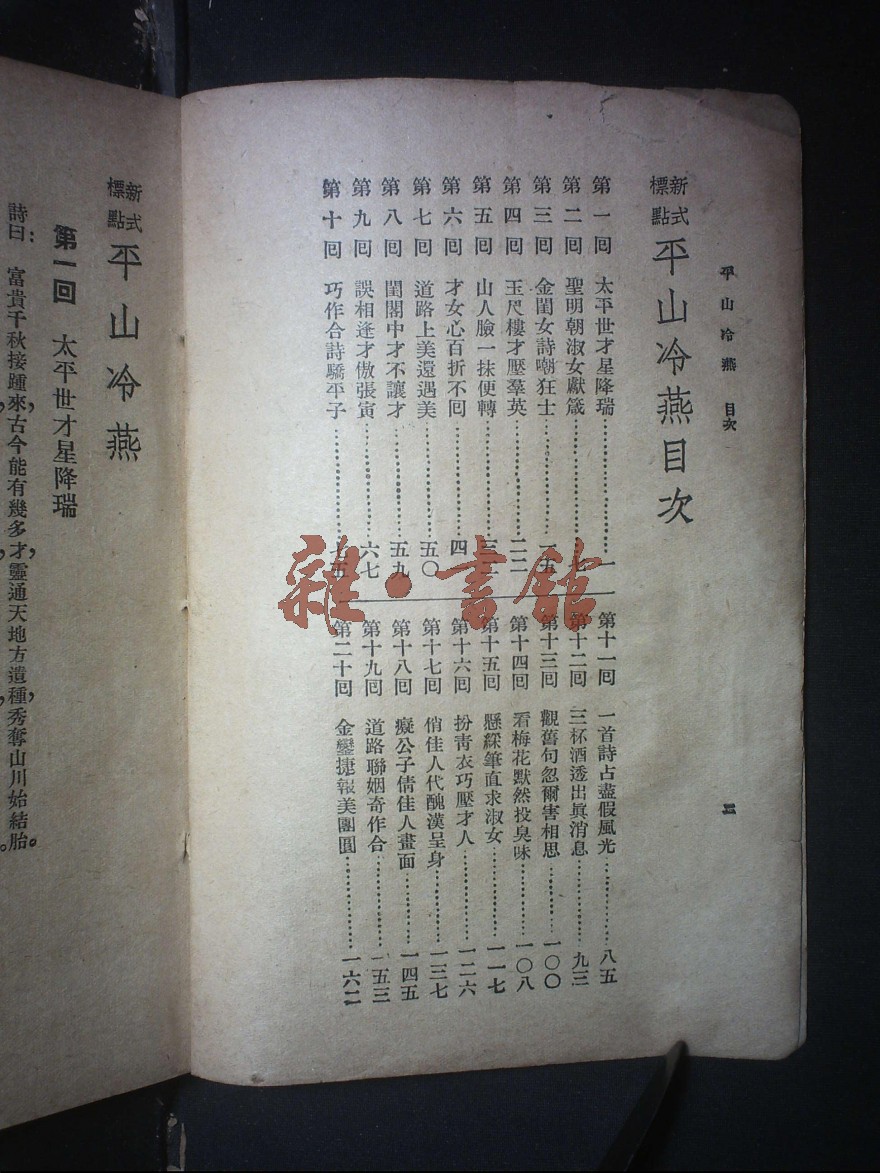 平山冷燕 目次
三
新式標點 平山冷燕目次
第一回 太平世才星降瑞……一
第二回 聖明朝淑女獻箴……七
第三回 金閨女詩嘲狂士……一五
第四回 玉尺樓才壓羣英……二二
第五回 山人臉一抹便轉……三二
第六回 才女心百折不回……四
第七回 道路上美還遇美……五〇
第八回 閨閣中才不讓才……五九
第九回 誤相逢才傲張寅……六七
第十回 巧作合詩驕平子……七五
第十一回 一首詩占盡假風光……八五
第十二回 三杯酒透出眞消息……九三
第十三回 觀舊句忽爾害相思……一〇〇
第十四回 看梅花默然投臭味……一〇八
第十五回 懸綵筆直求淑女……一一七
第十六回 扮靑衣巧壓才人……一二六
第十七回 俏佳人代醜漢呈身……一三七
第十八回 癡公子倩佳人畫面……一四五
第十九回 道路聯姻奇作合……一五三
第二十回 金鑾捷報美團圓……一六二
新式標點 平山冷燕
第一回 太平世才星降瑞
詩曰：富貴千秋接踵來，古今能有幾多才，靈通天地方遺種，秀奪山川始結胎。
雜·書館